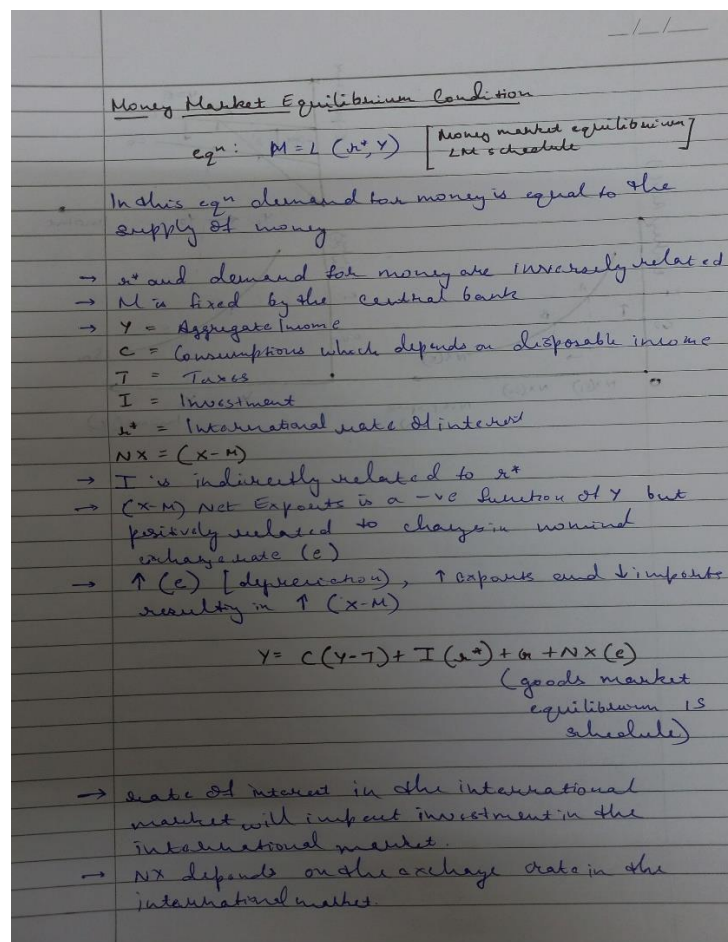 __/__/____
Money Market Equilibrium Condition
eqⁿ: M = L (r*, Y) [Money market equilibrium
LM schedule]
In this eqⁿ demand for money is equal to the
supply of money
→ r* and demand for money are inversely related
→ M is fixed by the central bank
→ Y = Aggregate Income
C = Consumptions which depends on disposable income
T = Taxes
I = Investment
r* = International rate of interest
NX = (X-M)
→ I is indirectly related to r*
→ (X-M) Net Exports is a -ve function of Y but
positively related to change in nominal
exchange rate (e)
→ ↑ (e) [depreciation), ↑ exports and ↓ imports
resulting in ↑ (X-M)
Y = C(Y-T) + I(r*) + G + NX(e)
(goods market
equilibrium IS
schedule)
→ rate of interest in the international
market will impact investment in the
international market.
→ NX depends on the exchage rate in the
international market.